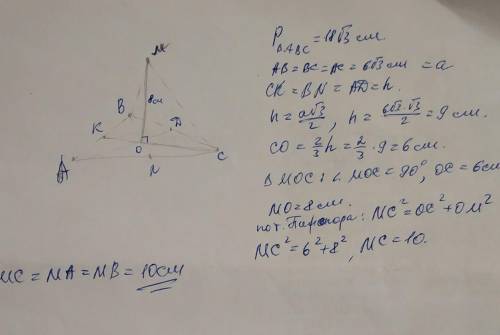 M
8см
B
K
D
O
A
N
C
P△ABC = 18√3 см.
AB = BC = AC = 6√3 см = a
CK = BN = AD = h.
h = a√3/2, h = 6√3·√3/2 = 9 см.
CO = 2/3 h = 2/3 · 9 = 6 см.
△MOC: ∠MOC = 90°, OC = 6 см
MO = 8 см.
по т. Пифагора: MC² = OC² + OM²
MC² = 6² + 8², MC = 10.
MC = MA = MB = 10см